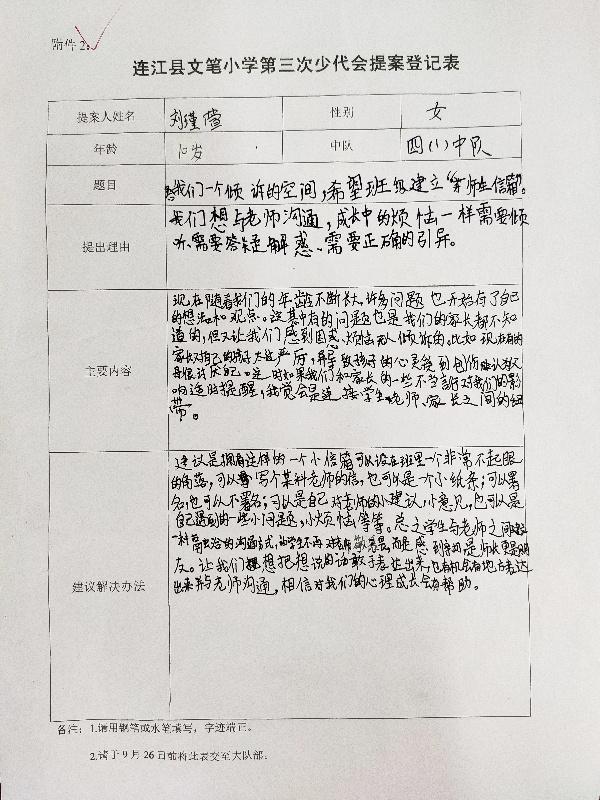 附件2:
连江县文笔小学第三次少代会提案登记表
提案人姓名 刘瑾萱 性别 女
年龄 10岁 中队 四(1)中队
题目 给我们一个倾诉的空间,希望班级建立“师生信箱”。
提出理由
我们想与老师沟通,成长中的烦恼一样需要倾
听、需要答疑解惑、需要正确的引导。
主要内容
现在随着我们的年龄不断长大,许多问题也开始有了自己
的想法和观点。这其中有的问题也是我们的家长都不知
道的,但又让我们感到困惑、烦恼无人倾诉的。比如现在有的
家长对自己的孩子太过严厉,导致孩子的心灵受到创伤
父母很讨厌自己。这时如果我们和家长的一些不当
适时提醒,我觉会是连接学生、老师、家长之间的纽
带。
建议解决办法
建议是拥有这样的一个小信箱可以设在班里一个非常不起眼
的角落,可以写个某科老师的信,也可以是一个小纸条;可以署
名,也可以不署名;可以是自己对老师的小建议,小意见,也可以是
自己遇到的一些小问题,小烦恼等等。总之学生与老师之间
一种的沟通方式,学生不再对老师敬畏,而是感到老师是师长更是朋
友。让我们想把想说的话敢于表达出来,也有机会有地方表达
出来并与老师沟通,相信对我们的心理成长会有帮助。
备注:1.请用钢笔或水笔填写,字迹端正。
2.请于9月26日前将此表交至大队部。